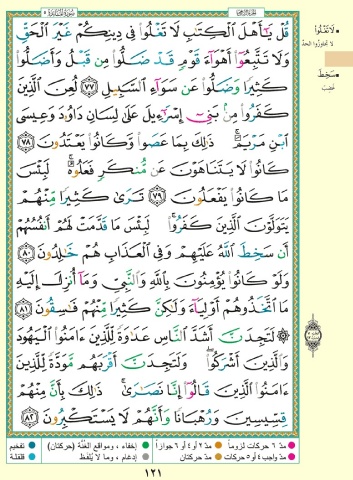 سُورَةُ المَائِدَةِ ٥
قُلْ يَـٰٓأَهْلَ ٱلْكِتَـٰبِ لَا تَغْلُوا۟ فِى دِينِكُمْ غَيْرَ ٱلْحَقِّ
وَلَا تَتَّبِعُوٓا۟ أَهْوَآءَ قَوْمٍ قَدْ ضَلُّوا۟ مِن قَبْلُ وَأَضَلُّوا۟
كَثِيرًا وَضَلُّوا۟ عَن سَوَآءِ ٱلسَّبِيلِ ٧٧ لُعِنَ ٱلَّذِينَ
كَفَرُوا۟ مِنۢ بَنِىٓ إِسْرَٰٓءِيلَ عَلَىٰ لِسَانِ دَاوُۥدَ وَعِيسَى
ٱبْنِ مَرْيَمَ ۚ ذَٰلِكَ بِمَا عَصَوا۟ وَّكَانُوا۟ يَعْتَدُونَ ٧٨
كَانُوا۟ لَا يَتَنَاهَوْنَ عَن مُّنكَرٍ فَعَلُوهُ ۚ لَبِئْسَ
مَا كَانُوا۟ يَفْعَلُونَ ٧٩ تَرَىٰ كَثِيرًا مِّنْهُمْ
يَتَوَلَّوْنَ ٱلَّذِينَ كَفَرُوا۟ ۚ لَبِئْسَ مَا قَدَّمَتْ لَهُمْ أَنفُسُهُمْ
أَن سَخِطَ ٱللَّهُ عَلَيْهِمْ وَفِى ٱلْعَذَابِ هُمْ خَـٰلِدُونَ ٨٠
وَلَوْ كَانُوا۟ يُؤْمِنُونَ بِٱللَّهِ وَٱلنَّبِىِّ وَمَآ أُنزِلَ إِلَيْهِ
مَا ٱتَّخَذُوهُمْ أَوْلِيَآءَ وَلَـٰكِنَّ كَثِيرًا مِّنْهُمْ فَـٰسِقُونَ ٨١
۞ لَتَجِدَنَّ أَشَدَّ ٱلنَّاسِ عَدَٰوَةً لِّلَّذِينَ ءَامَنُوا۟ ٱلْيَهُودَ
وَٱلَّذِينَ أَشْرَكُوا۟ ۖ وَلَتَجِدَنَّ أَقْرَبَهُم مَّوَدَّةً لِّلَّذِينَ
ءَامَنُوا۟ ٱلَّذِينَ قَالُوٓا۟ إِنَّا نَصَـٰرَىٰ ۚ ذَٰلِكَ بِأَنَّ مِنْهُمْ
قِسِّيسِينَ وَرُهْبَانًا وَأَنَّهُمْ لَا يَسْتَكْبِرُونَ ٨٢
لَا تَغْلُوا۟
لا تُجاوِزُوا الحَدَّ
سَخِطَ
غَضِبَ
مدّ ٦ حركات لزوماً
مدّ ٢ أو ٤ أو ٦ جوازاً
إخفاء، ومواقع الغُنَّة (حركتان)
تفخيم
مدّ واجب ٤ أو ٥ حركات
مدّ حركتان
إدغام، وما لا يُلفَظ
قلقلة
١٢١